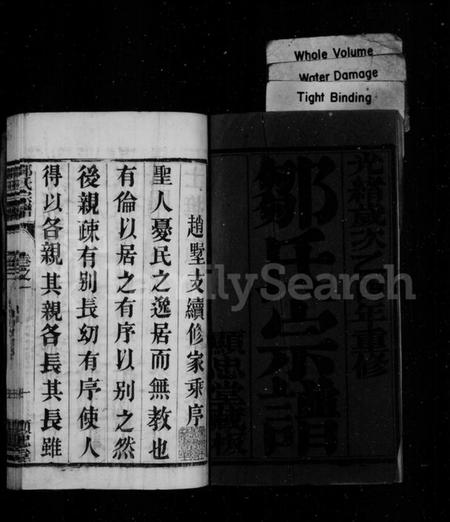 Whole Volume
Water Damage
Tight Binding
光緒歲次乙
年重修
鄒氏宗譜
顯忠堂藏板
趙墅支續修家乘序
聖人憂民之逸居而無教也
有倫以居之有序以別之然
後親疎有別長幼有序使人
得以各親其親各長其長雖
FamilySearch